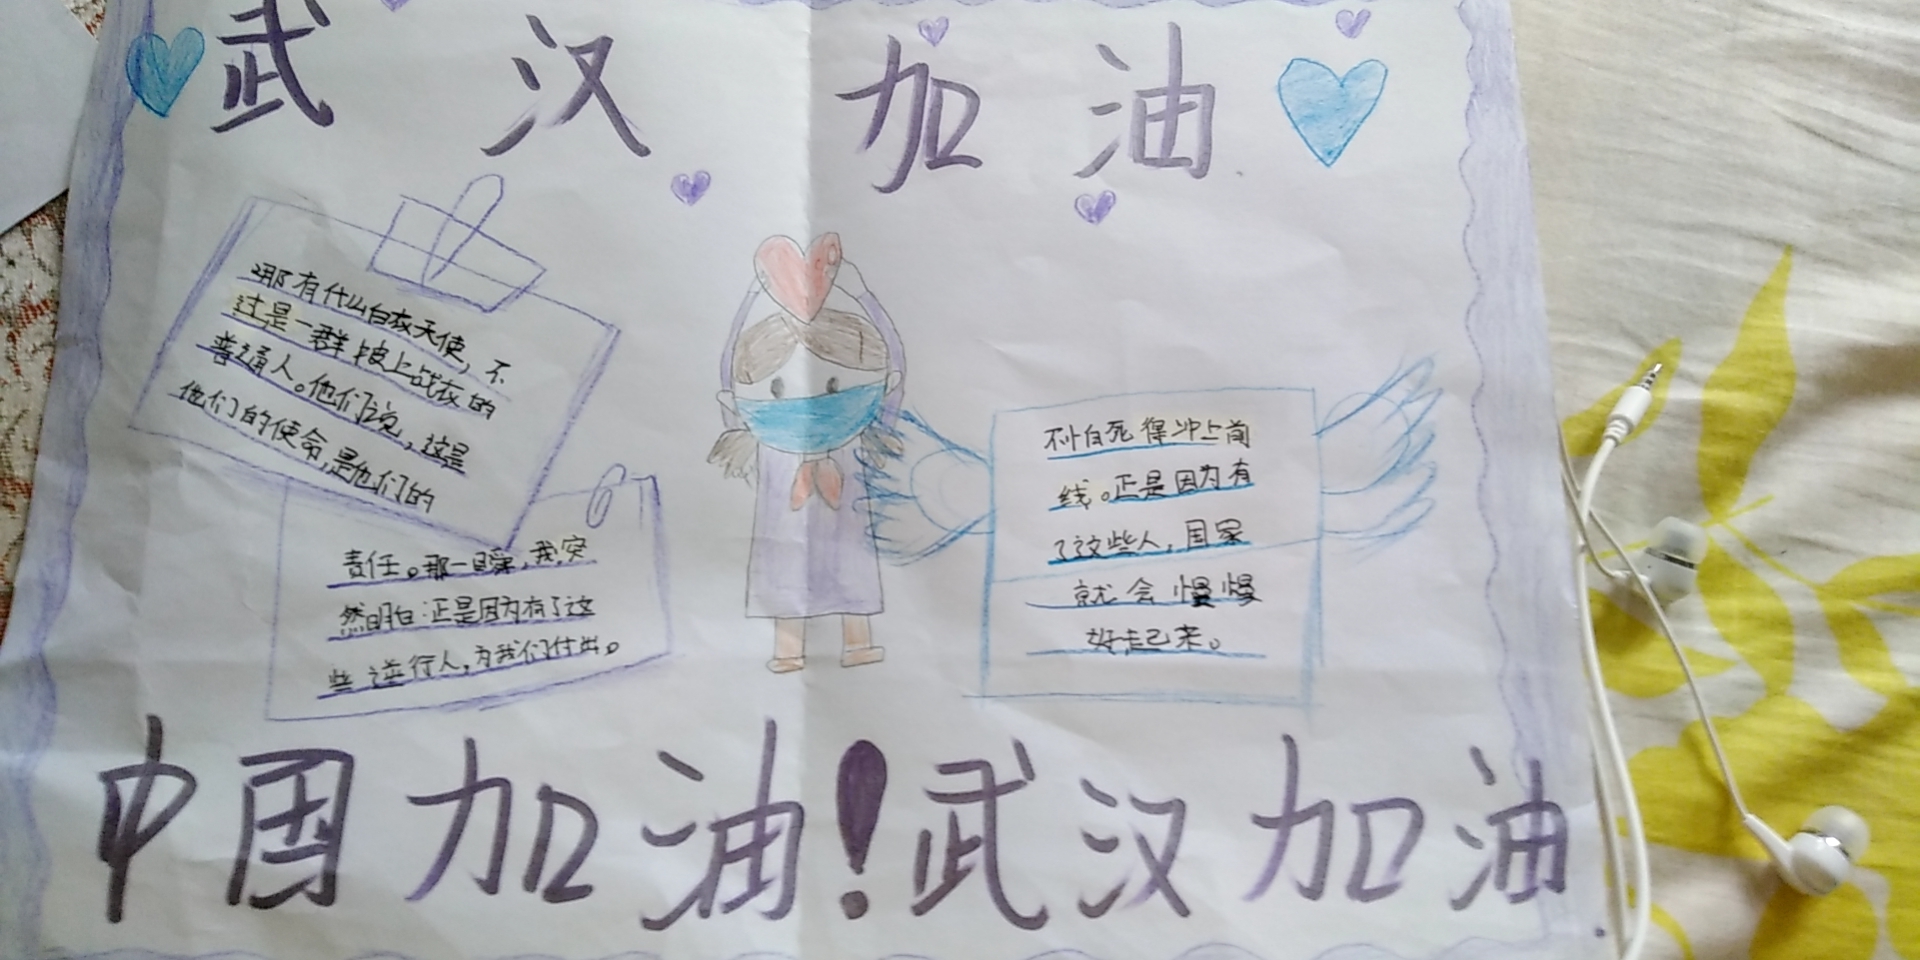 武汉加油
那有什么白衣天使，不
过是一群披上战衣的
普通人。他们说，这是
他们的使命，是他们的
责任。那一瞬，我突
然明白：正是因为有了这
些逆行人，为我们付出。
不怕死得冲上前
线。正是因为有
了这些人，国家
就会慢慢
好起来。
中国加油！武汉加油